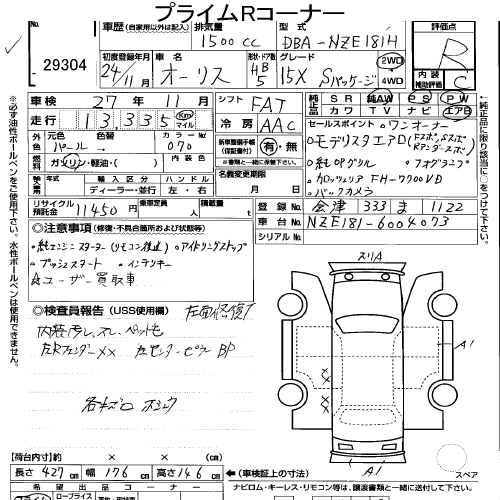 プライムRコーナー
車歴 (自家用以外は記入) 排気量 1500cc 型式 DBA-NZE181H 評価点 R
29304
初度登録年月 24/11月 車名 オーリス 形状・ドア数 HB 5 グレード 15X Sパッケージ 2WD 4WD 内装 補助評価 C
車検 27年 11月 シフト FAT 純正品 SR 純AW PS PW
純正品 カワ TV ナビ エアB
走行 13,335 Km マイル 冷房 AAC
セールスポイント ・ワンオーナー
・モデリスタエアロ(Fスポ、Sスポ Rアンダースポ)
外色 元色 パール 色替 カラーNo 070
新車整備手帳(保証書付) 有・無
※書類と一緒に保管して下さい
・純OPグリル ・フォグランプ
燃料 ガソリン・軽油・( ) 内装色
・カロッツェリア FH-770DVD
・バックカメラ
輸入車 輸入区分 ハンドル
ディーラー・並行 左・右
名義変更期限 月 日
リサイクル預託金 11450 乗車定員 人 積載量 t
登録 会津 333 ま 1122
車台 NZE181-6004073
シリアルNo.
◎注意事項 (修復・不具合箇所および状態等)
・純エンジンスターター(リモコン後送) ・アイドリングストップ
・プッシュスタート ・インテリキー
☆ユーザー買取車
スリA
◎検査員報告 (USS使用欄) 左面修復歴
内装汚レ、スレ、ペット毛
左Rフェンダーxx 左センターピラーBP
各キズ
A1
A1
スペア
【荷台内寸】約 × × (cm)
長さ 427 幅 176 高さ 146 (cm)
(車検証上の寸法)
希望出品コーナー
ナビロム・キーレス・リモコン等は、譲渡書類と一緒に送付して下さい。
※必ず油性ボールペンで記入して下さい。水性ボールペン不可。